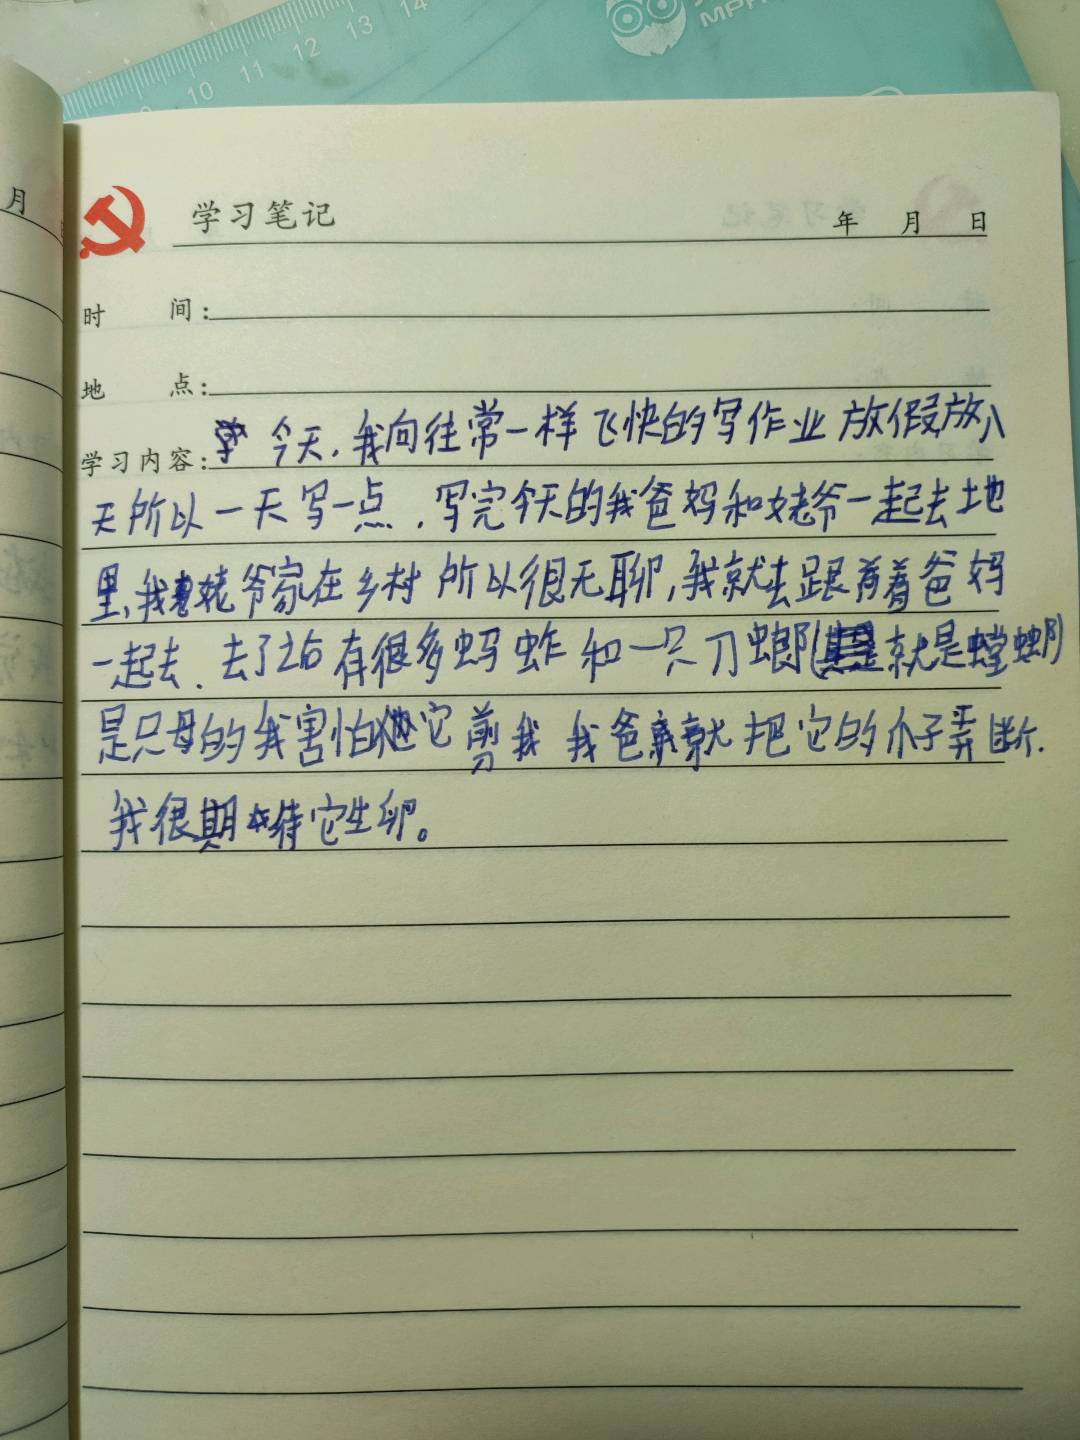 10 11 12 13 14
MPH
月
学习笔记 年 月 日
时 间:
地 点:
学习内容: 今天,我向往常一样飞快的写作业放假放八
天所以一天写一点,写完今天的我爸妈和姥爷一起去地
里,我姥爷家在乡村所以很无聊,我就去跟着爸妈
一起去.去了之后有很多蚂蚱和一只刀螂(就是螳螂)
是只母的我害怕它剪我我爸就把它的小子弄断.
我很期待它生卵。